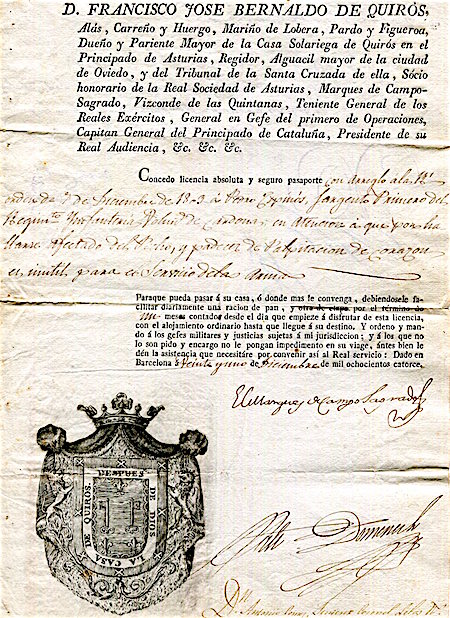 D. FRANCISCO JOSE BERNALDO DE QUIRÓS,
Alás, Carreño y Huergo, Mariño de Lobera, Pardo y Figueroa,
Dueño y Pariente Mayor de la Casa Solariega de Quirós en el
Principado de Asturias, Regidor, Alguacil mayor de la ciudad
de Oviedo, y del Tribunal de la Santa Cruzada de ella, Sócio
honorario de la Real Sociedad de Asturias, Marques de Campo-
Sagrado, Vizconde de las Quintanas, Teniente General de los
Reales Exércitos, General en Gefe del primero de Operaciones,
Capitan General del Principado de Cataluña, Presidente de su
Real Audiencia, &c. &c. &c.
Concedo licencia absoluta y seguro pasaporte con arreglo a la Rl.
orden de de Diciembre de Sargento Primero del
Infanteria de Cardona, en atencion á que por ha
llarse afectado del Pecho, y padecer de Palpitacion de corazon
es inutil para el Servicio de la Arma
Paraque pueda pasar á su casa, ó donde mas le convenga, debiendosele fa-
cilitar diariamente una racion de pan, y otra de etapa por el término de
meses contados desde el dia que empieze á disfrutar de esta licencia,
con el alojamiento ordinario hasta que llegue á su destino. Y ordeno y man-
do á los gefes militares y justicias sujetas á mi jurisdiccion; y á los que no
lo son pido y encargo no le pongan impedimento en su viage, ántes bien le
dén la asistencia que necesitáre por convenir así al Real servicio: Dado en
Barcelona á Veinte y uno de Diciembre de mil ochocientos catorce.
El Marques de Campo Sagrado
DESPUES DE DIOS
LA CASA DE QUIROS
Domenech
Dn. Antonio Teniente Coronel